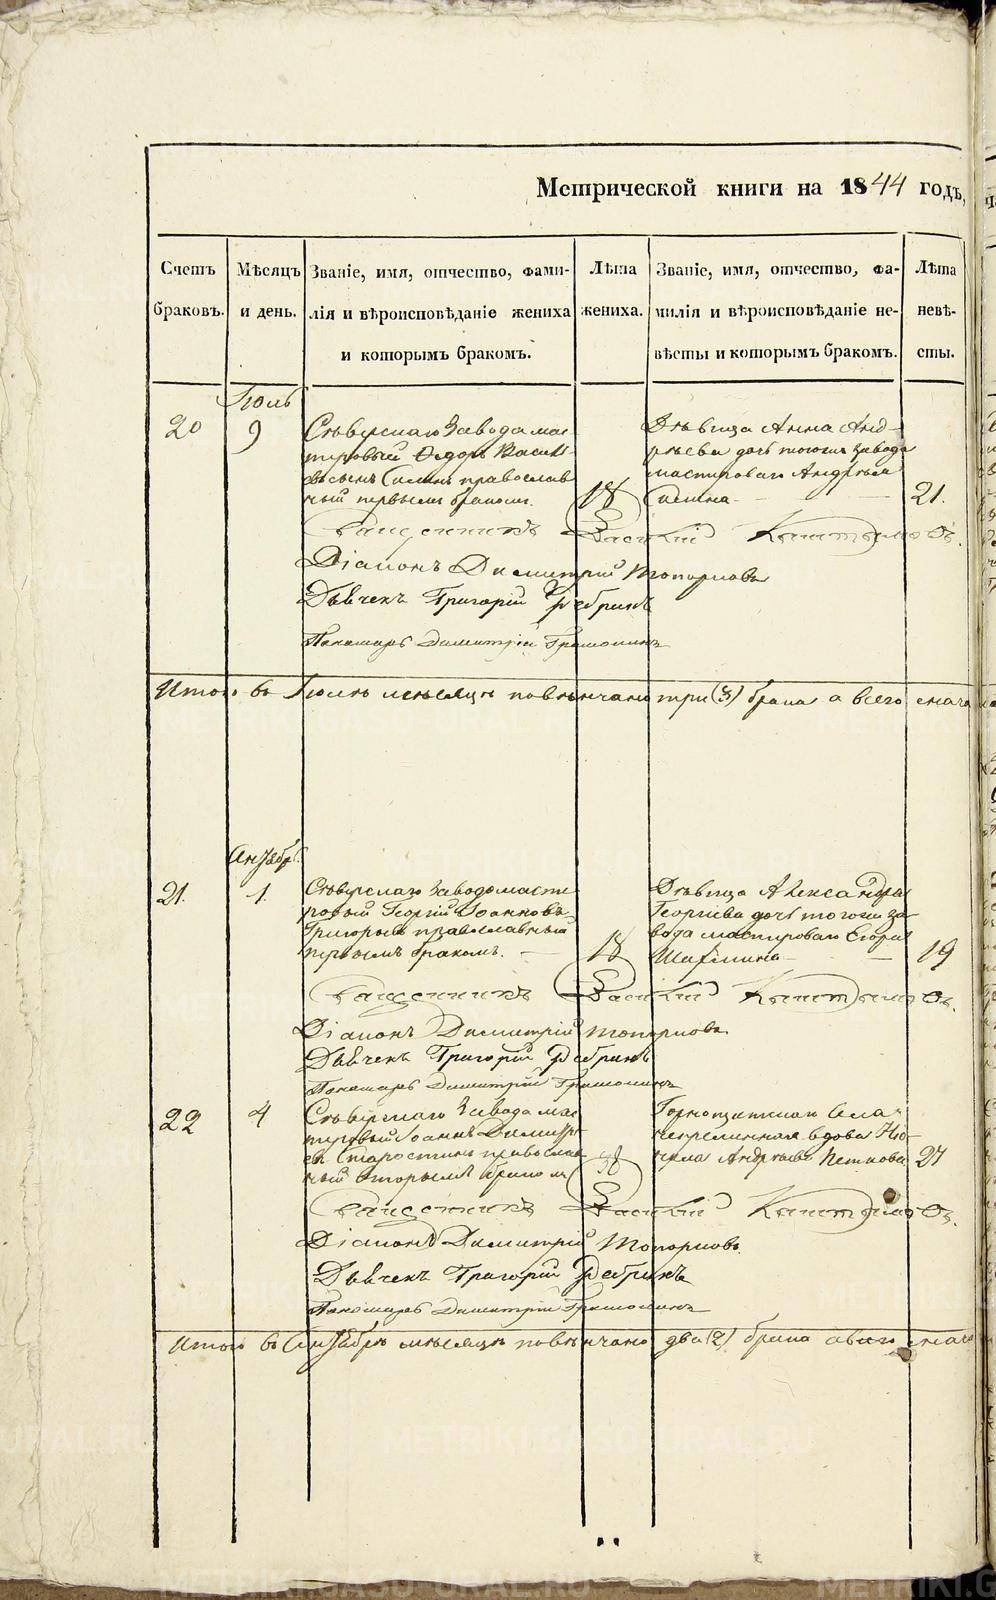 Метрической книги на 1844 годъ,
Счетъ браковъ.
Мѣсяцъ и день.
Званіе, имя, отчество, фами-
лія и вѣроисповѣданіе жениха
и которымъ бракомъ.
Лѣта
жениха.
Званіе, имя, отчество, фа-
милія и вѣроисповѣданіе не-
вѣсты и которымъ бракомъ.
Лѣта
невѣ-
сты.
Іюль
20
9
Сѣверскаго Завода мас-
теровый Ѳедоръ Василь-
евъ сынъ православ
ный первымъ бракомъ.
18
Дѣвица Анна Анд-
реева дочь тогожъ завода
мастероваго Андрея
21.
Священникъ Василій Кыштымовъ.
Діаконъ Димитрій Топорковъ
Дьячекъ Григорій Ребринъ
Пономарь Димитрій
Итого въ Іюлѣ мѣсяцѣ повѣнчано три (3) брака а всего снача
21.
1.
Сѣверскаго завода масте
ровый Георгій Іоанновъ
Григорьевъ православный
первымъ бракомъ.
18
Дѣвица Александра
Георгіева дочь тогожъ за-
вода мастероваго Егора
19
Священникъ Василій Кыштымовъ.
Діаконъ Димитрій Топорковъ
Дьячекъ Григорій Ребринъ
Пономарь Димитрій
22
4
Сѣверскаго Завода мас
теровый Іоаннъ Димитрі
евъ Старостинъ православ
ный вторымъ бракомъ
38
Горнощитскаго Села
вдова
Андреева
27
Священникъ Василій Кыштымовъ.
Діаконъ Димитрій Топорковъ
Дьячекъ Григорій Ребринъ
Пономарь Димитрій
Итого въ мѣсяцѣ повѣнчано два (2) брака а всего снача
METRIKI.GASO-URAL.RU